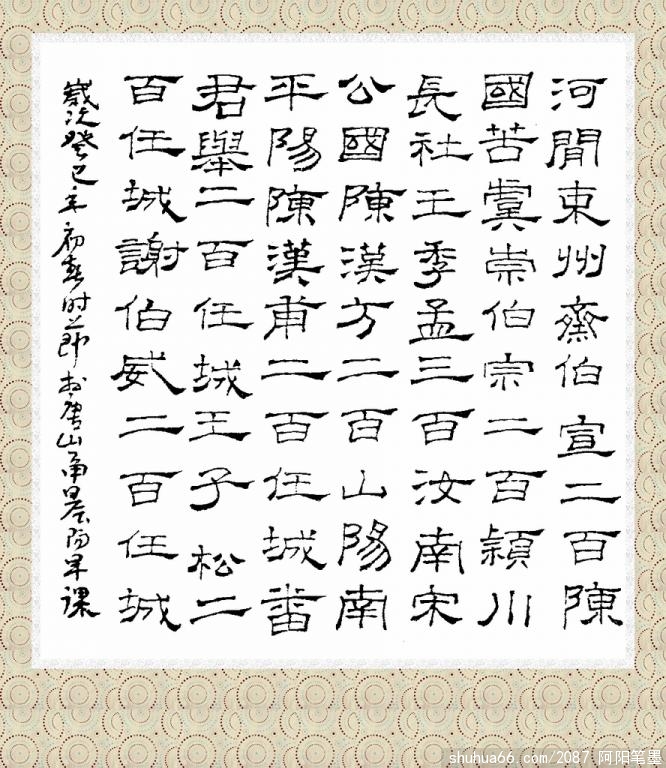 河閒東州齋伯宣二百陳
國苦虞崇伯宗二百潁川
長社王季孟三百汝南宋
公國陳漢方二百山陽南
平陽陳漢甫二百任城番
君舉二百任城王子松二
百任城謝伯威二百任城
歲次癸巳年初春时节书唐山甬晨阳早课
shuhua66.com/2087 阿阳笔墨